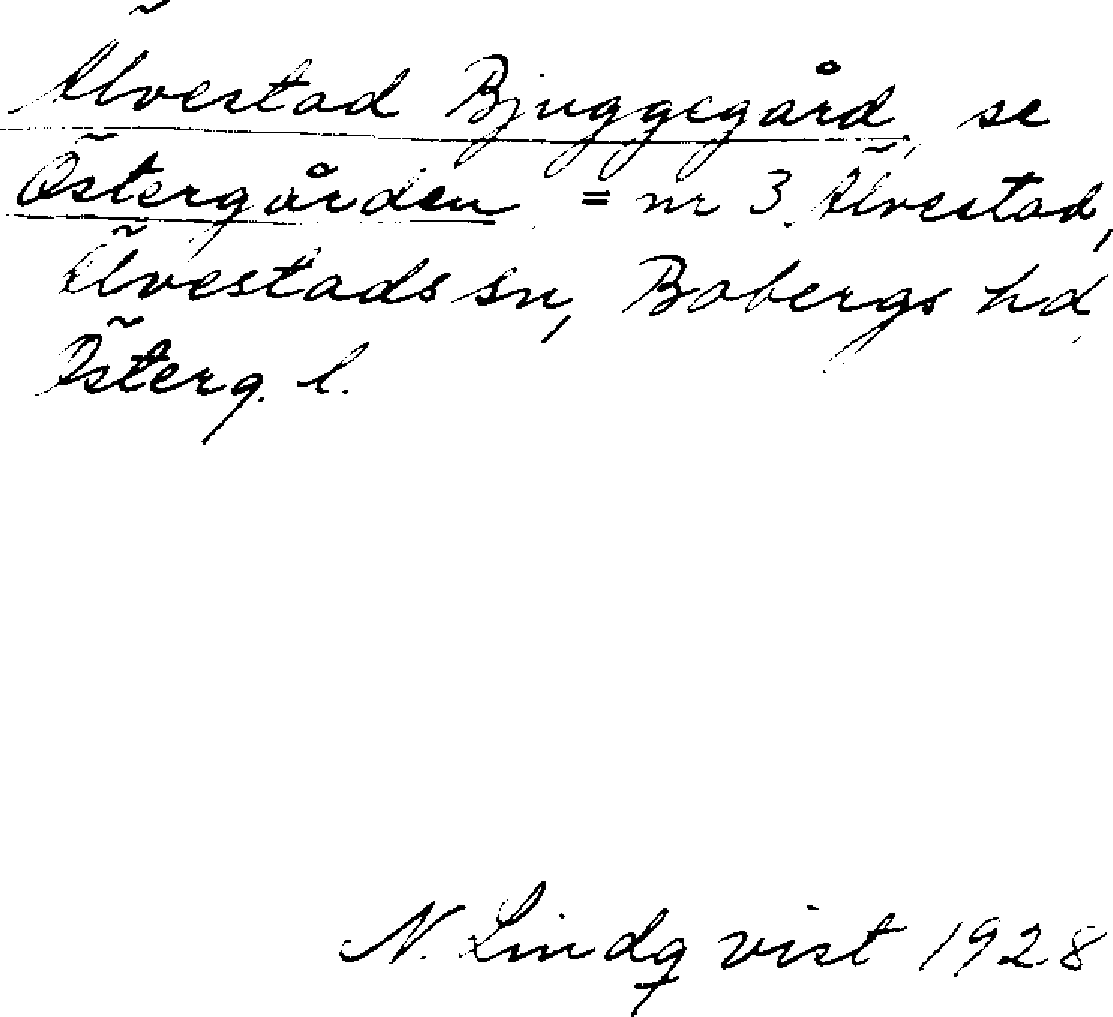 Älvestad Bjuggegård, se
Östergården = nr 3 Älvestad,
Älvestads sn, Bobergs hd
Österg. l.
N. Lindqvist 1928